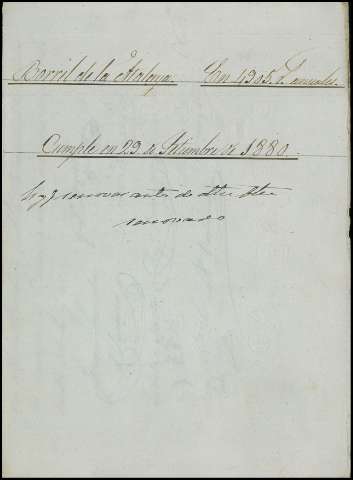 Barril de la Atalaya. En 4305. r. anuales.
Cumple en 29 de Setiembre de 1880.
hay q renovar antes de
renovado